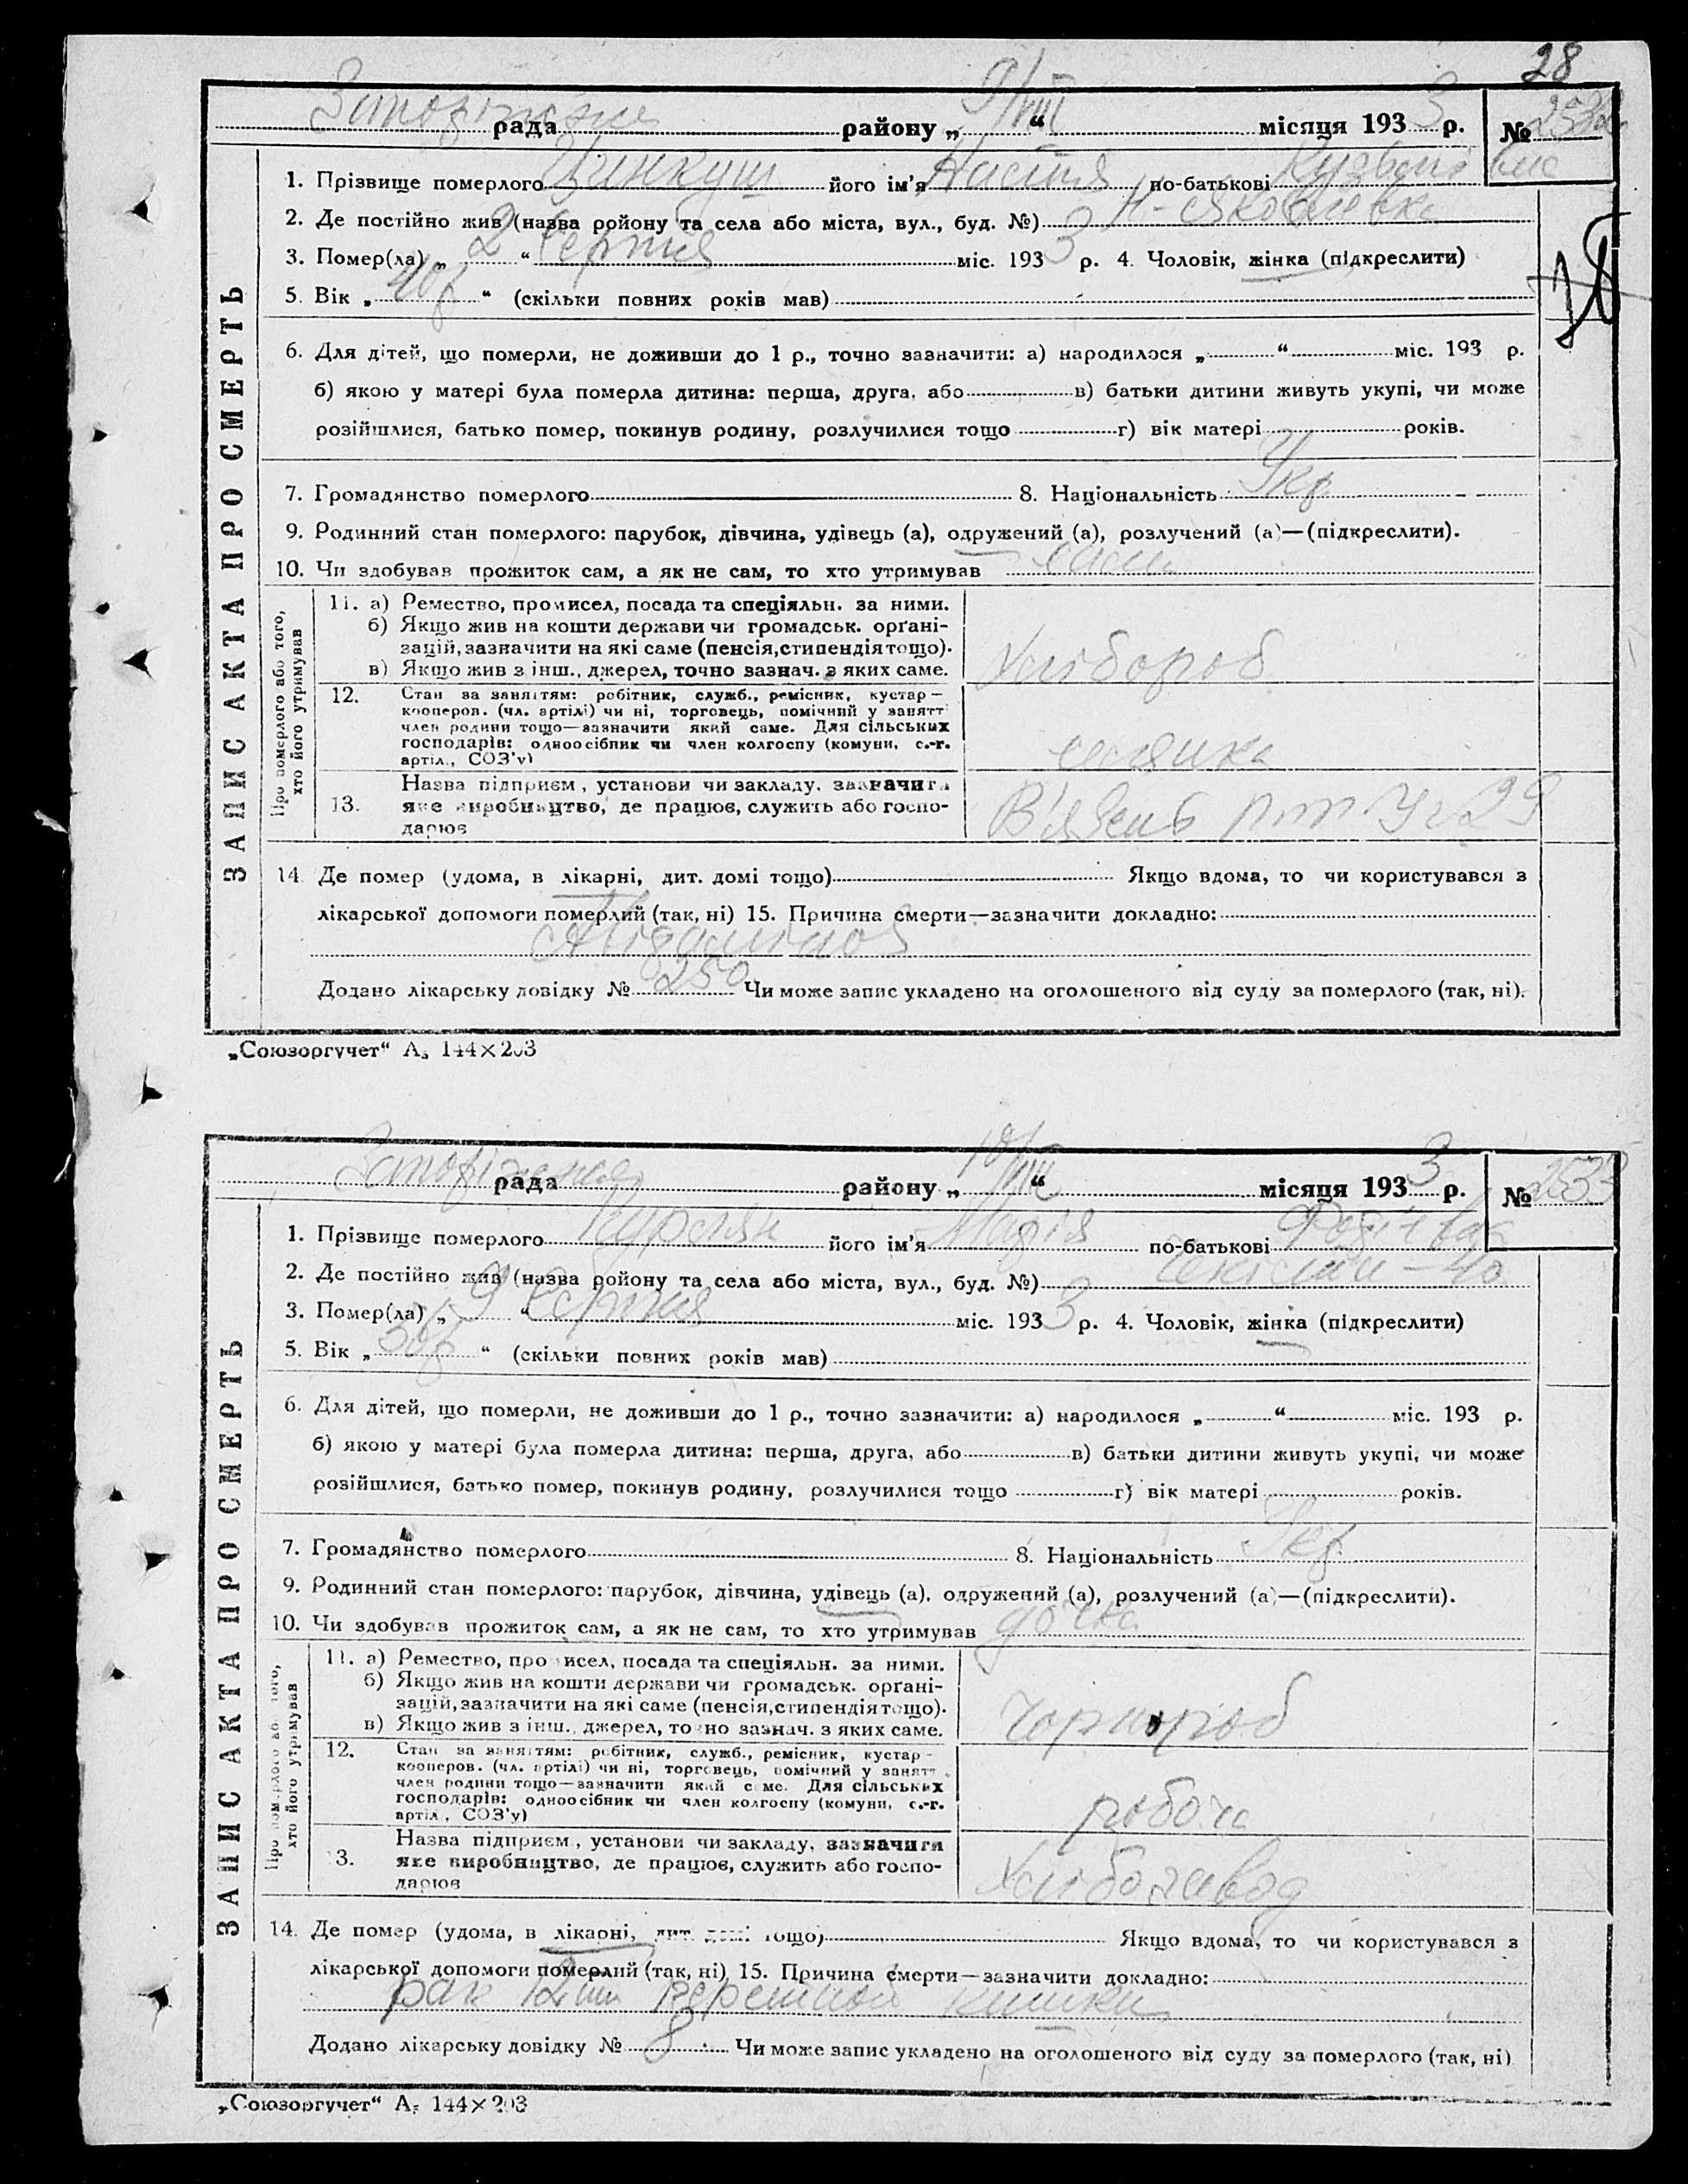 28
Запоріжжя рада району „ 9/VIII “ місяця 193 3 р. № 2532
ЗАПИС АКТА ПРО СМЕРТЬ
1. Прізвище померлого його ім'я Настя по-батькові
2. Де постійно жив (назва ройону та села або міста, вул., буд. №) Н-Яковлевка
3. Помер(ла) „ 2 “ серпня міс. 193 3 р. 4. Чоловік, жінка (підкреслити)
5. Вік „ 40 р “ (скільки повних років мав)
6. Для дітей, що померли, не доживши до 1 р., точно зазначити: а) народилося „ “ міс. 193 р.
б) якою у матері була померла дитина: перша, друга, або в) батьки дитини живуть укупі, чи може
розійшлися, батько помер, покинув родину, розлучилися тощо г) вік матері років.
7. Громадянство померлого 8. Національність Укр
9. Родинний стан померлого: парубок, дівчина, удівець (а), одружений (а), розлучений (а)—(підкреслити).
10. Чи здобував прожиток сам, а як не сам, то хто утримував сама
Про померлого або того, хто його утримував
11. а) Ремество, промисел, посада та спеціяльн. за ними.
б) Якщо жив на кошти держави чи громадськ. орґані-
зацій, зазначити на які саме (пенсія, стипендія тощо).
в) Якщо жив з інш., джерел, точно зазнач. з яких саме.
Хлібороб
12. Стан за заняттям: робітник, служб., ремісник, кустар—
кооперов. (чл. артілі) чи ні, торговець, помічний у занятт
член родини тощо—зазначити який саме. Для сільських
господарів: одноосібник чи член колгоспу (комуни, с.-г.
артіл., СОЗ'у)
селянка
13. Назва підприєм, установи чи закладу, зазначити
яке виробництво, де працює, служить або госпо-
дарює
В'язень
14. Де помер (удома, в лікарні, дит. домі тощо) Якщо вдома, то чи користувався з
лікарської допомоги померлий (так, ні) 15. Причина смерти—зазначити докладно:
Авідаміноз
Додано лікарську довідку № 250 Чи може запис укладено на оголошеного від суду за померлого (так, ні).
„Союзоргучет“ А5 144×203
Запоріжжя рада району „ 10/VIII “ місяця 193 3 р. № 2533
ЗАПИС АКТА ПРО СМЕРТЬ
1. Прізвище померлого його ім'я Марія по-батькові
2. Де постійно жив (назва ройону та села або міста, вул., буд. №)
3. Помер(ла) „ 9 “ серпня міс. 193 3 р. 4. Чоловік, жінка (підкреслити)
5. Вік „ “ (скільки повних років мав)
6. Для дітей, що померли, не доживши до 1 р., точно зазначити: а) народилося „ “ міс. 193 р.
б) якою у матері була померла дитина: перша, друга, або в) батьки дитини живуть укупі, чи може
розійшлися, батько помер, покинув родину, розлучилися тощо г) вік матері років.
7. Громадянство померлого 8. Національність Укр.
9. Родинний стан померлого: парубок, дівчина, удівець (а), одружений (а), розлучений (а)—(підкреслити).
10. Чи здобував прожиток сам, а як не сам, то хто утримував дочка
Про померлого або того, хто його утримував
11. а) Ремество, промисел, посада та спеціяльн. за ними.
б) Якщо жив на кошти держави чи громадськ. орґані-
зацій, зазначити на які саме (пенсія, стипендія тощо).
в) Якщо жив з інш., джерел, точно зазнач. з яких саме.
Чорнороб
12. Стан за заняттям: робітник, служб., ремісник, кустар—
кооперов. (чл. артілі) чи ні, торговець, помічний у занятт
член родини тощо—зазначити який саме. Для сільських
господарів: одноосібник чи член колгоспу (комуни, с.-г.
артіл., СОЗ'у)
робоча
13. Назва підприєм, установи чи закладу, зазначити
яке виробництво, де працює, служить або госпо-
дарює
Хлібозавод
14. Де помер (удома, в лікарні, дит. домі тощо) Якщо вдома, то чи користувався з
лікарської допомоги померлий (так, ні) 15. Причина смерти—зазначити докладно:
рак 12ти перстной кишки
Додано лікарську довідку № 8 Чи може запис укладено на оголошеного від суду за померлого (так, ні)
„Союзоргучет“ А5 144×203